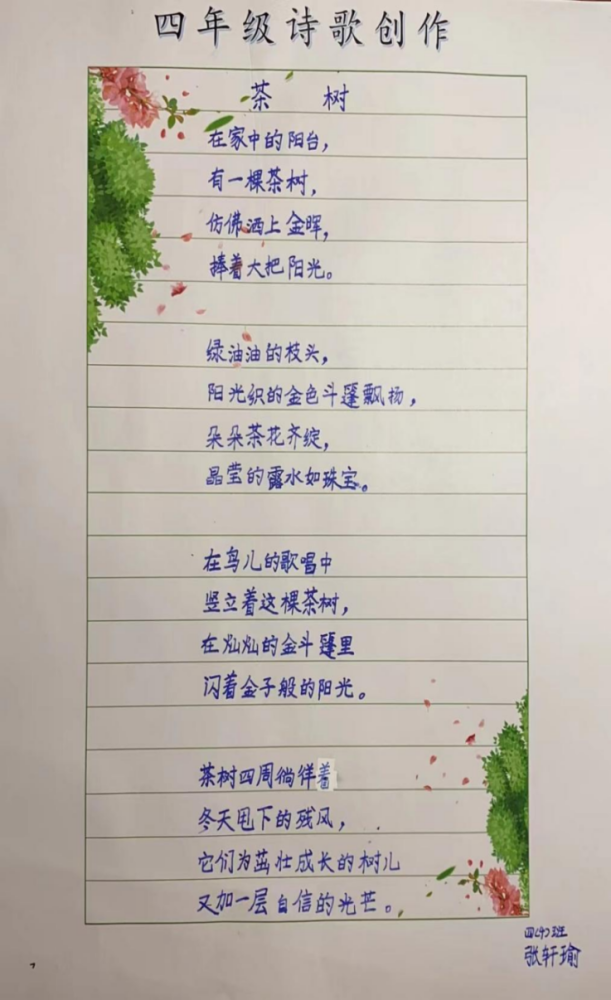 四年级诗歌创作
茶 树
在家中的阳台，
有一棵茶树，
仿佛洒上金晖，
捧着大把阳光。
绿油油的枝头，
阳光织的金色斗篷飘扬，
朵朵茶花齐绽，
晶莹的露水如珠宝。
在鸟儿的歌唱中
竖立着这棵茶树，
在灿灿的金斗篷里
闪着金子般的阳光。
茶树四周徜徉着
冬天甩下的残风，
它们为茁壮成长的树儿
又加一层自信的光芒。
张轩瑜